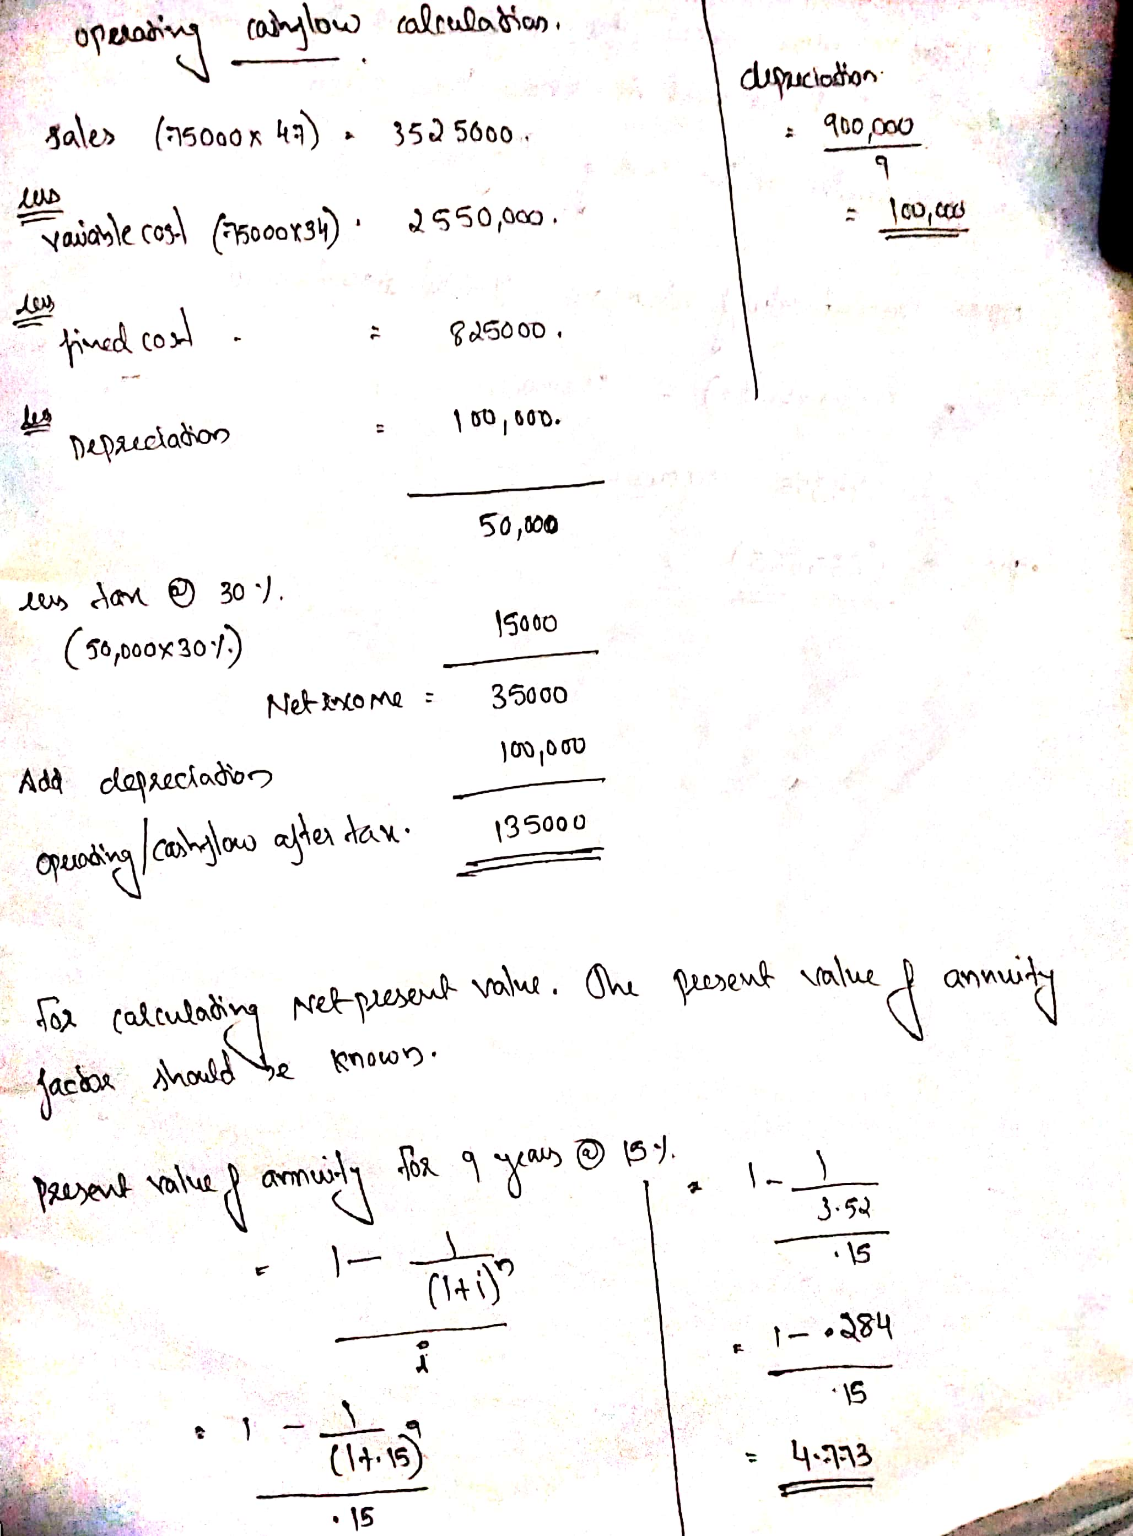 operating cashflow calculation.
sales (75000 x 47) = 3525000.
less
variable cost (75000x34) = 2550,000.
less
fixed cost - = 825000.
less
Depreciation = 100,000.
50,000
less tax @ 30 %.
(50,000x30%) 15000
Net income = 35000
Add depreciation 100,000
operating/cashflow after tax. 135000
depreciation.
= 900,000
9
= 100,000
For calculating Net present value. The present value of annuity
factor should be known.
present value of annuity for 9 years @ 15%.
= 1 - 1
(1+i)n
i
= 1 - 1
(1+.15)9
.15
= 1 - 1
3.52
.15
= 1 - .284
.15
= 4.773